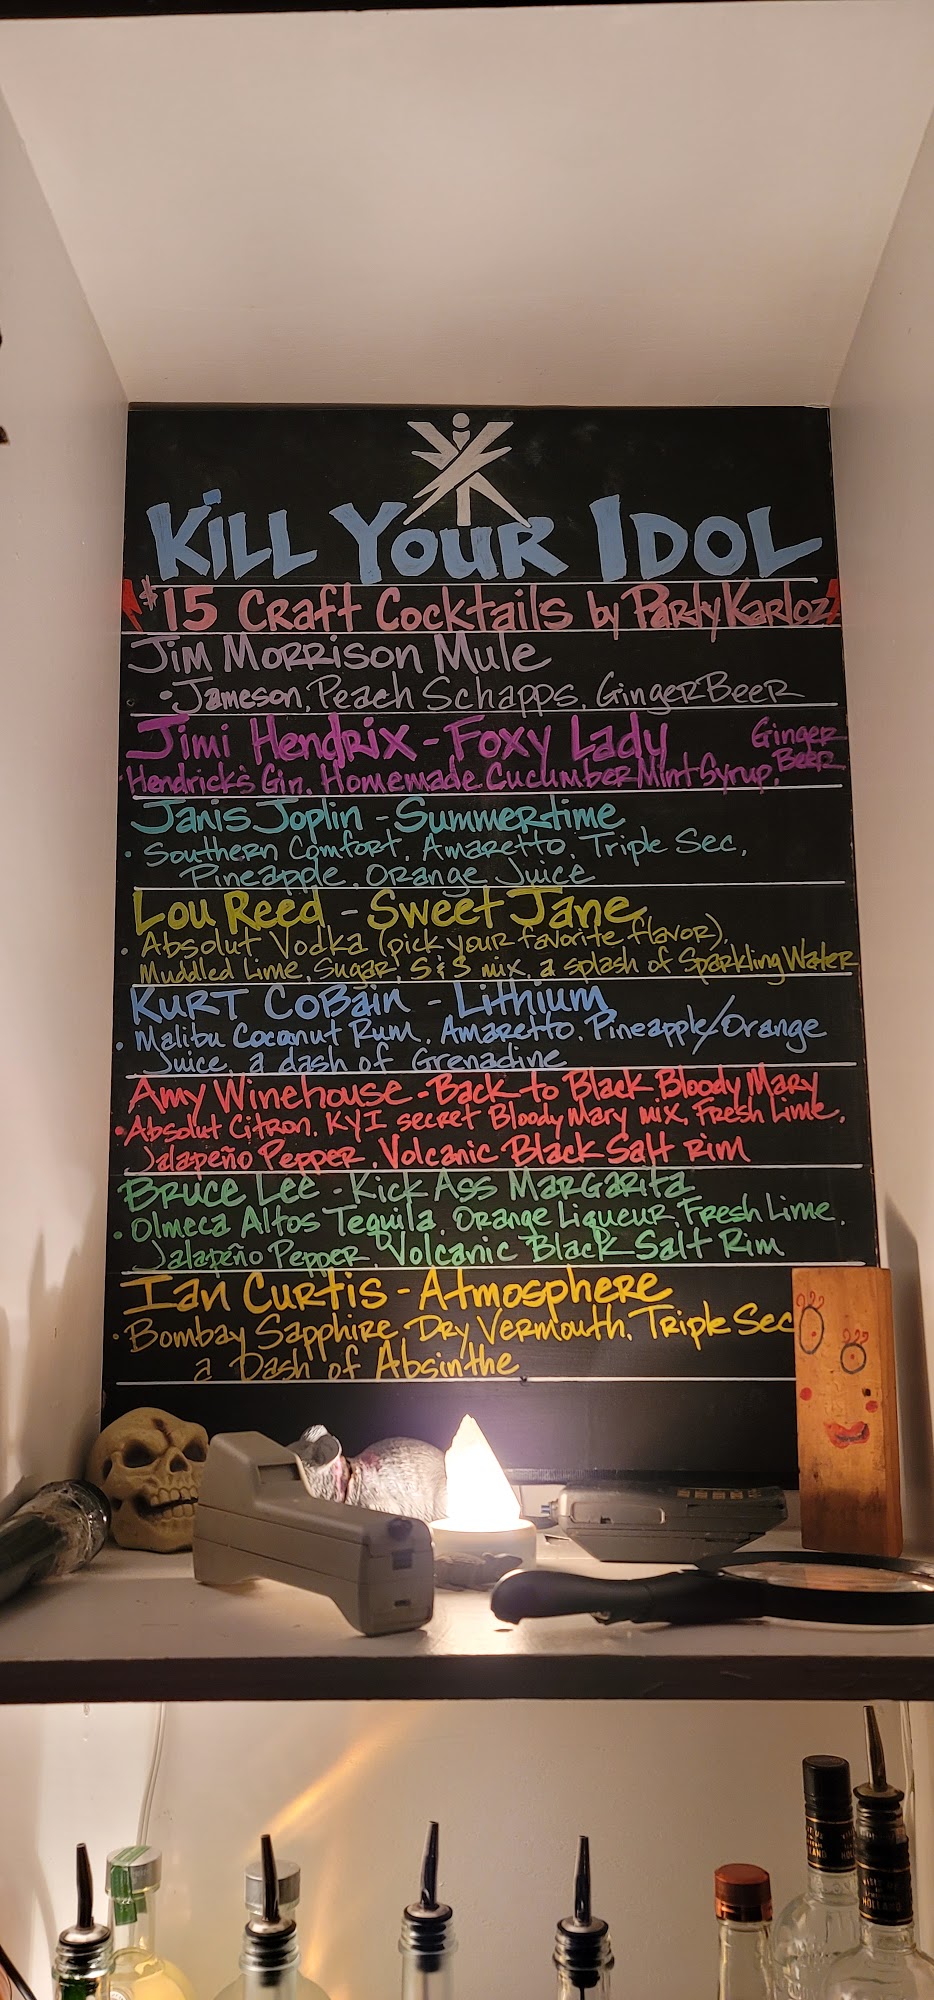 Kill Your Idol
$15 Craft Cocktails by PartyKarloz
Jim Morrison Mule
• Jameson, Peach Schapps, Ginger Beer
Jimi Hendrix - Foxy Lady
• Hendrick's Gin, Homemade Cucumber Mint Syrup, Ginger Beer
Janis Joplin - Summertime
• Southern Comfort, Amaretto, Triple Sec,
Pineapple, Orange Juice
Lou Reed - Sweet Jane
• Absolut Vodka (pick your favorite flavor),
Muddled Lime, Sugar, S & S mix, a splash of Sparkling Water
Kurt Cobain - Lithium
• Malibu Coconut Rum, Amaretto, Pineapple/Orange
Juice, a dash of Grenadine
Amy Winehouse - Back to Black Bloody Mary
• Absolut Citron, KYI secret Bloody Mary mix, Fresh Lime,
Jalapeño Pepper, Volcanic Black Salt Rim
Bruce Lee - Kick Ass Margarita
• Olmeca Altos Tequila, Orange Liqueur, Fresh Lime,
Jalapeño Pepper, Volcanic Black Salt Rim
Ian Curtis - Atmosphere
• Bombay Sapphire, Dry Vermouth, Triple Sec
a Dash of Absinthe
HOLLAND